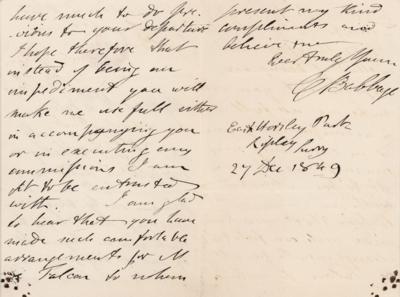 have much to do pre-
vious to your departure
I hope therefore that
instead of being an
impediment you will
make me useful either
in accompanying you
or in executing any
commissions I am
fit to be entrusted
with. I am glad
to hear that you have
made such comfortable
arrangements for M
Falcon to whom
present my kind
compliments and
believe me
Truly Yours
C Babbage
East Horsley Park
Ripley
Surry
27 Dec 1849